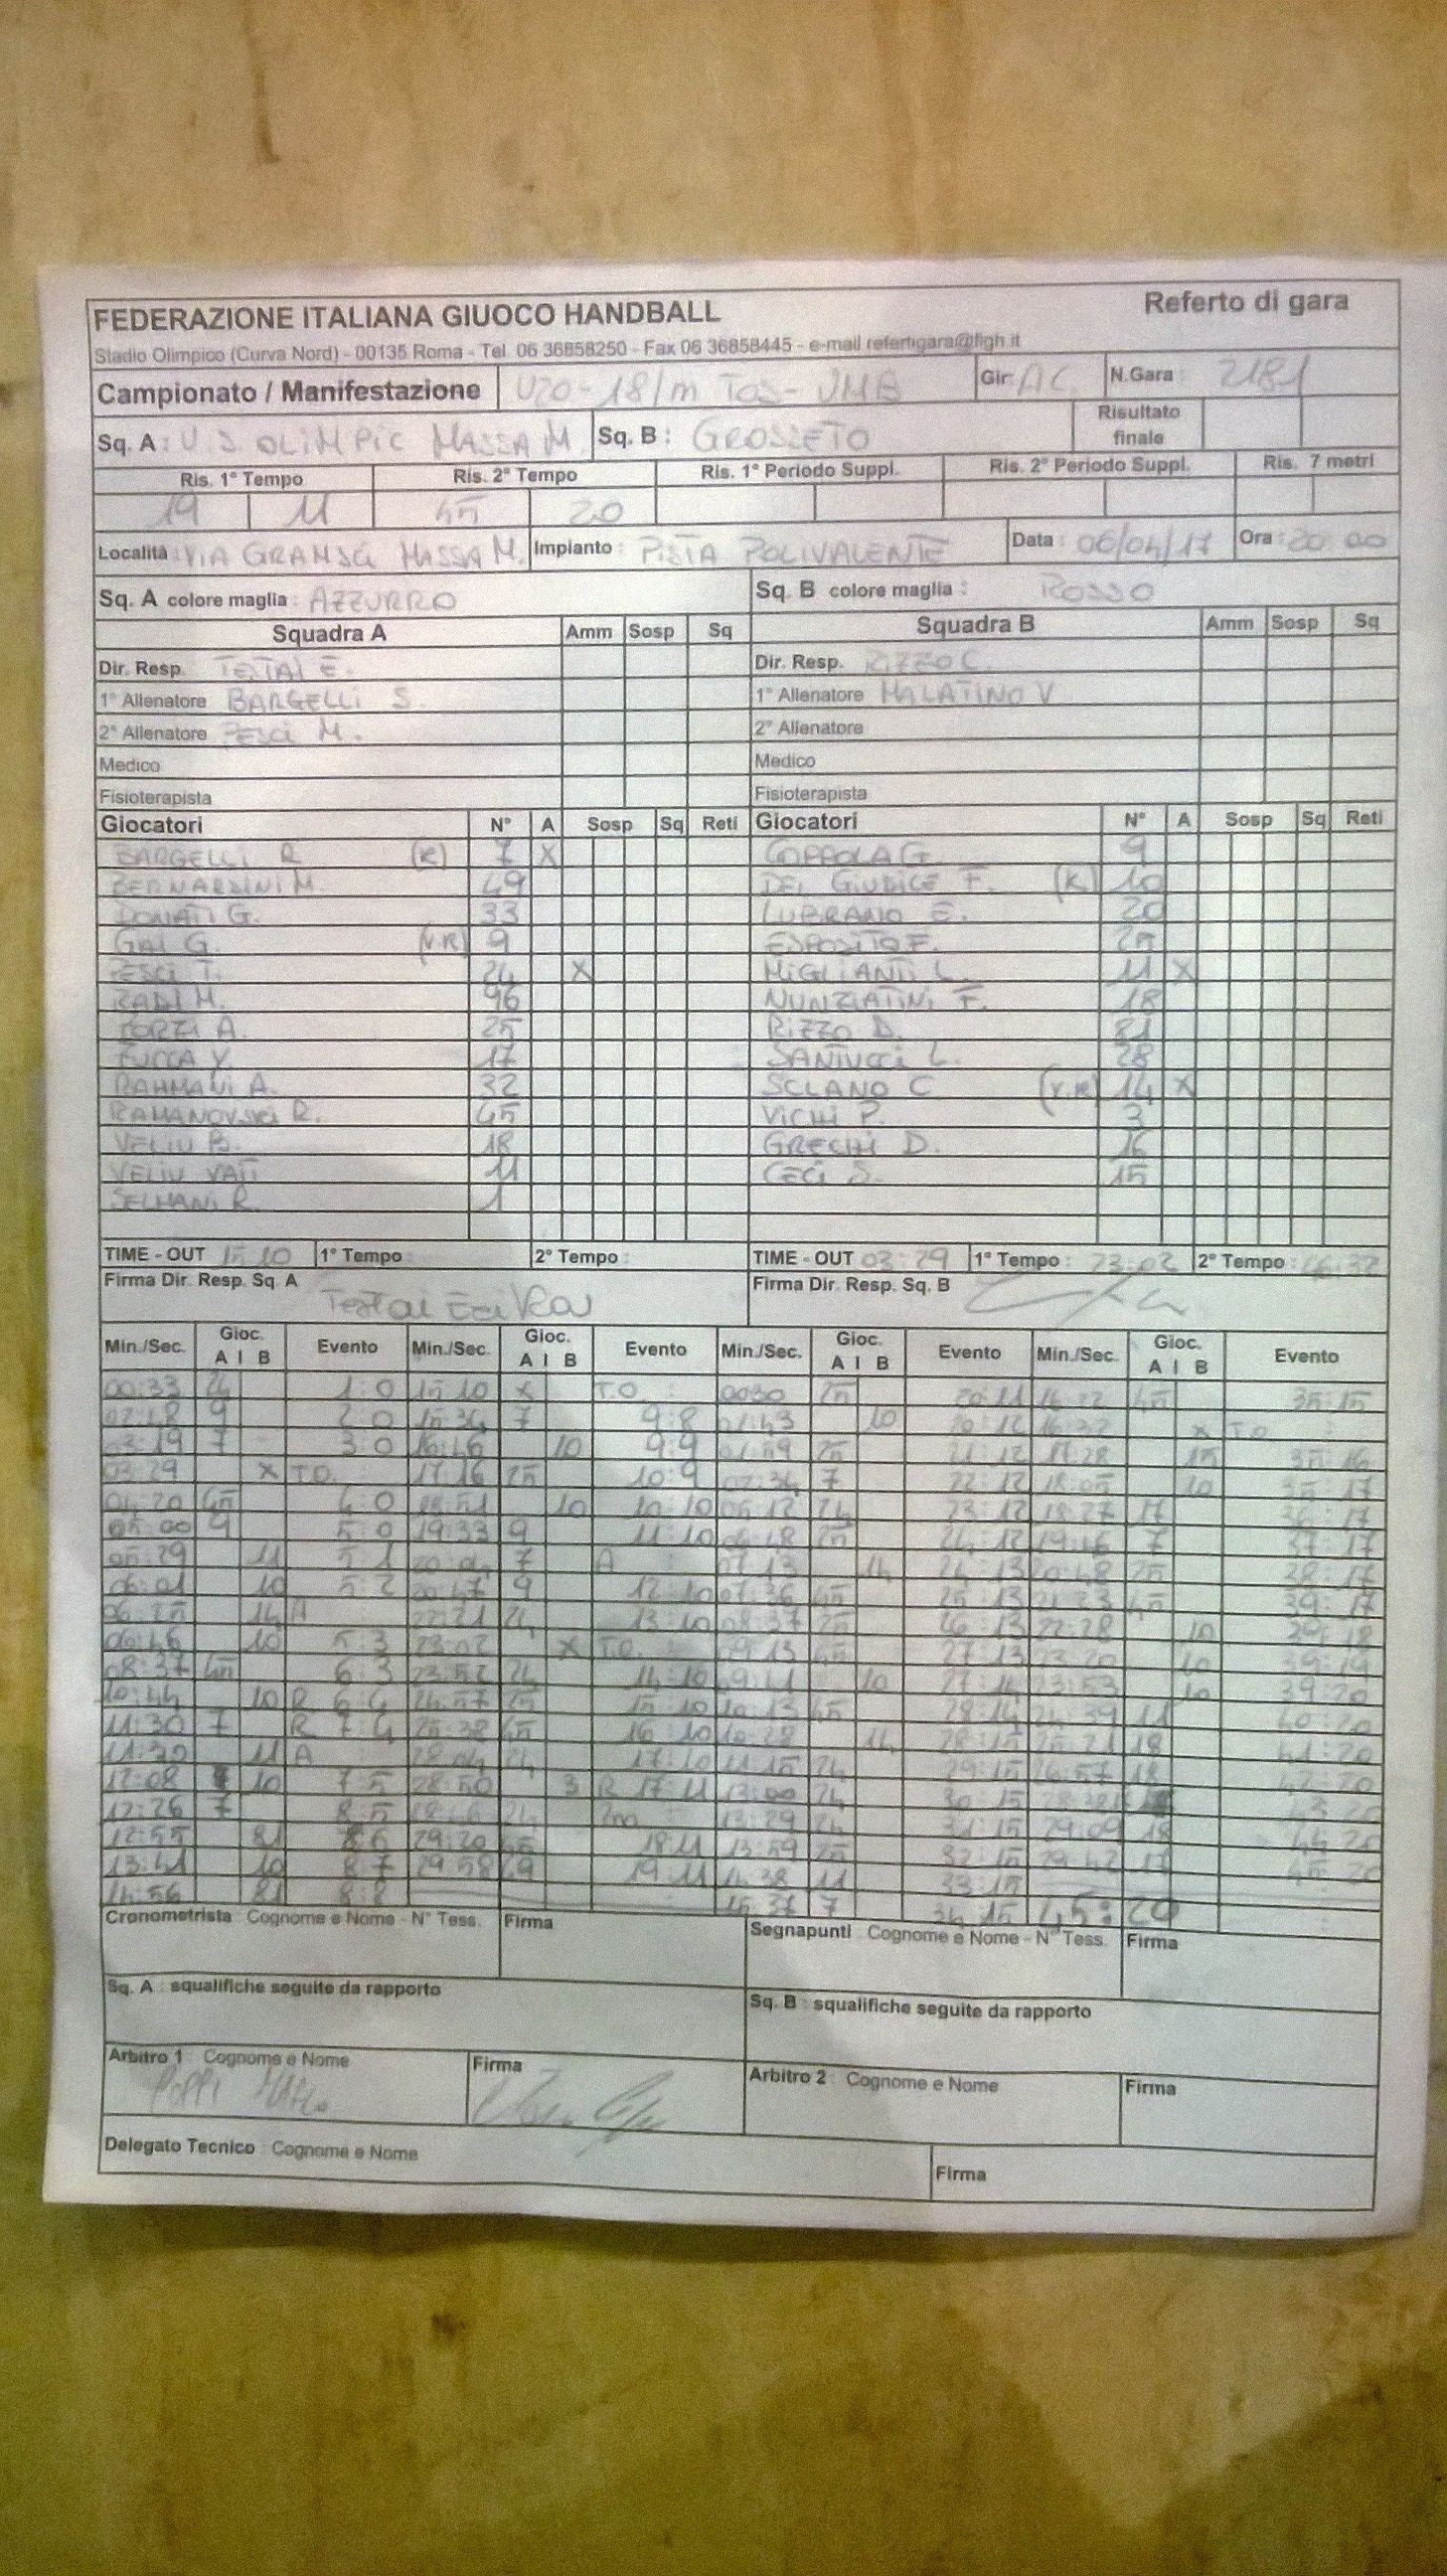 FEDERAZIONE ITALIANA GIUOCO HANDBALL Referto di gara
Stadio Olimpico (Curva Nord) - 00135 Roma - Tel. 06 36858250 - Fax 06 36858445 - e-mail refertigara@figh.it
Campionato / Manifestazione U20-18/M Gir. AC N.Gara : 2181
Sq. A : U.S. OLIMPIC MASSA M. Sq. B : GROSSETO Risultato finale
Ris. 1° Tempo Ris. 2° Tempo Ris. 1° Periodo Suppl. Ris. 2° Periodo Suppl. Ris. 7 metri
19 11 45 20
Località : VIA GRAMSCI MASSA M. Impianto : PISTA POLIVALENTE Data : 06/04/17 Ora : 20:00
Sq. A colore maglia : AZZURRO Sq. B colore maglia : ROSSO
Squadra A Amm Sosp Sq Squadra B Amm Sosp Sq
Dir. Resp. Dir. Resp. RIZZO C.
1° Allenatore BARGELLI S. 1° Allenatore MALATINO V
2° Allenatore PESCI M. 2° Allenatore
Medico Medico
Fisioterapista Fisioterapista
Giocatori N° A Sosp Sq Reti Giocatori N° A Sosp Sq Reti
BARGELLI R (K) 7 X COPPOLA G. 9
BERNARDINI M. 49 DEL GIUDICE F. (K) 10
DONATI G. 33 LUBRANO E. 20
GAI G. (V.K) 9 ESPOSITO F. 25
PESCI T. 24 X MIGLIANTI L. 11 X
RADI M. 96 NUNZIATINI F. 18
TORZI A. 25 RIZZO D. 81
ZUCCA Y. 17 SANTUCCI L. 28
RAHMANI A. 32 SCLANO C (V.K) 14 X
RAMANOVSKI R. 45 VICHI P. 3
VELIU B. 18 GRECHI D. 16
VELIU VATI 11 CECI S. 15
SELMANI R. 1
TIME - OUT 15:10 1° Tempo : 2° Tempo : TIME - OUT 03:29 1° Tempo : 23:02 2° Tempo : 16:32
Firma Dir. Resp. Sq. A Firma Dir. Resp. Sq. B
Min./Sec. Gioc. A I B Evento Min./Sec. Gioc. A I B Evento Min./Sec. Gioc. A I B Evento Min./Sec. Gioc. A I B Evento
00:33 24 1:0 15 10 X T.O. : 00:30 25 20:11 16:22 45 35:15
02:48 9 2:0 15:34 7 9:8 01:43 10 20:12 16:32 X T.O.
03:19 7 3:0 16:46 10 9:9 01:59 25 21:12 17:28 15 35:16
03:29 X T.O. 17:16 25 10:9 02:34 7 22:12 18:05 10 35:17
04:20 45 4:0 18:51 10 10:10 05:12 24 23:12 18:27 17 36:17
05:00 9 5:0 19:33 9 11:10 06:48 25 24:12 19:46 7 37:17
05:29 11 5:1 20:04 7 A : 07:13 14 24:13 20:48 25 38:17
06:01 10 5:2 9 12:10 07:36 45 25:13 21:23 45 39:17
06:25 14 A 22:21 24 13:10 08:37 25 26:13 22:28 10 39:18
06:46 10 5:3 23:02 X T.O. : 09:13 45 27:13 23:20 10 39:19
08:37 45 6:3 23:52 24 14:10 09:41 10 27:14 23:53 10 39:20
10:44 10 R 6:4 24:57 25 15:10 10:13 45 28:14 24:39 11 40:20
11:30 7 R 7:4 25:38 45 16:10 10:28 14 28:15 25:21 18 41:20
11:30 11 A 28:04 24 17:10 11:15 24 29:15 26:57 18 42:20
12:08 10 7:5 28:50 3 R 17:11 13:00 24 30:15 43:20
12:26 7 8:5 24 2m : 13:29 24 31:15 29:09 18 44:20
12:55 81 8:6 29:20 45 18:11 13:59 25 32:15 29:42 17 45:20
13:41 10 8:7 29:58 49 19:11 14:38 11 33:15
14:56 81 8:8 15:37 7 34:15 45:20
Cronometrista : Cognome e Nome - N° Tess. Firma Segnapunti : Cognome e Nome - N° Tess. Firma
Sq. A : squalifiche seguite da rapporto Sq. B : squalifiche seguite da rapporto
Arbitro 1 : Cognome e Nome Firma Arbitro 2 : Cognome e Nome Firma
Delegato Tecnico : Cognome e Nome Firma